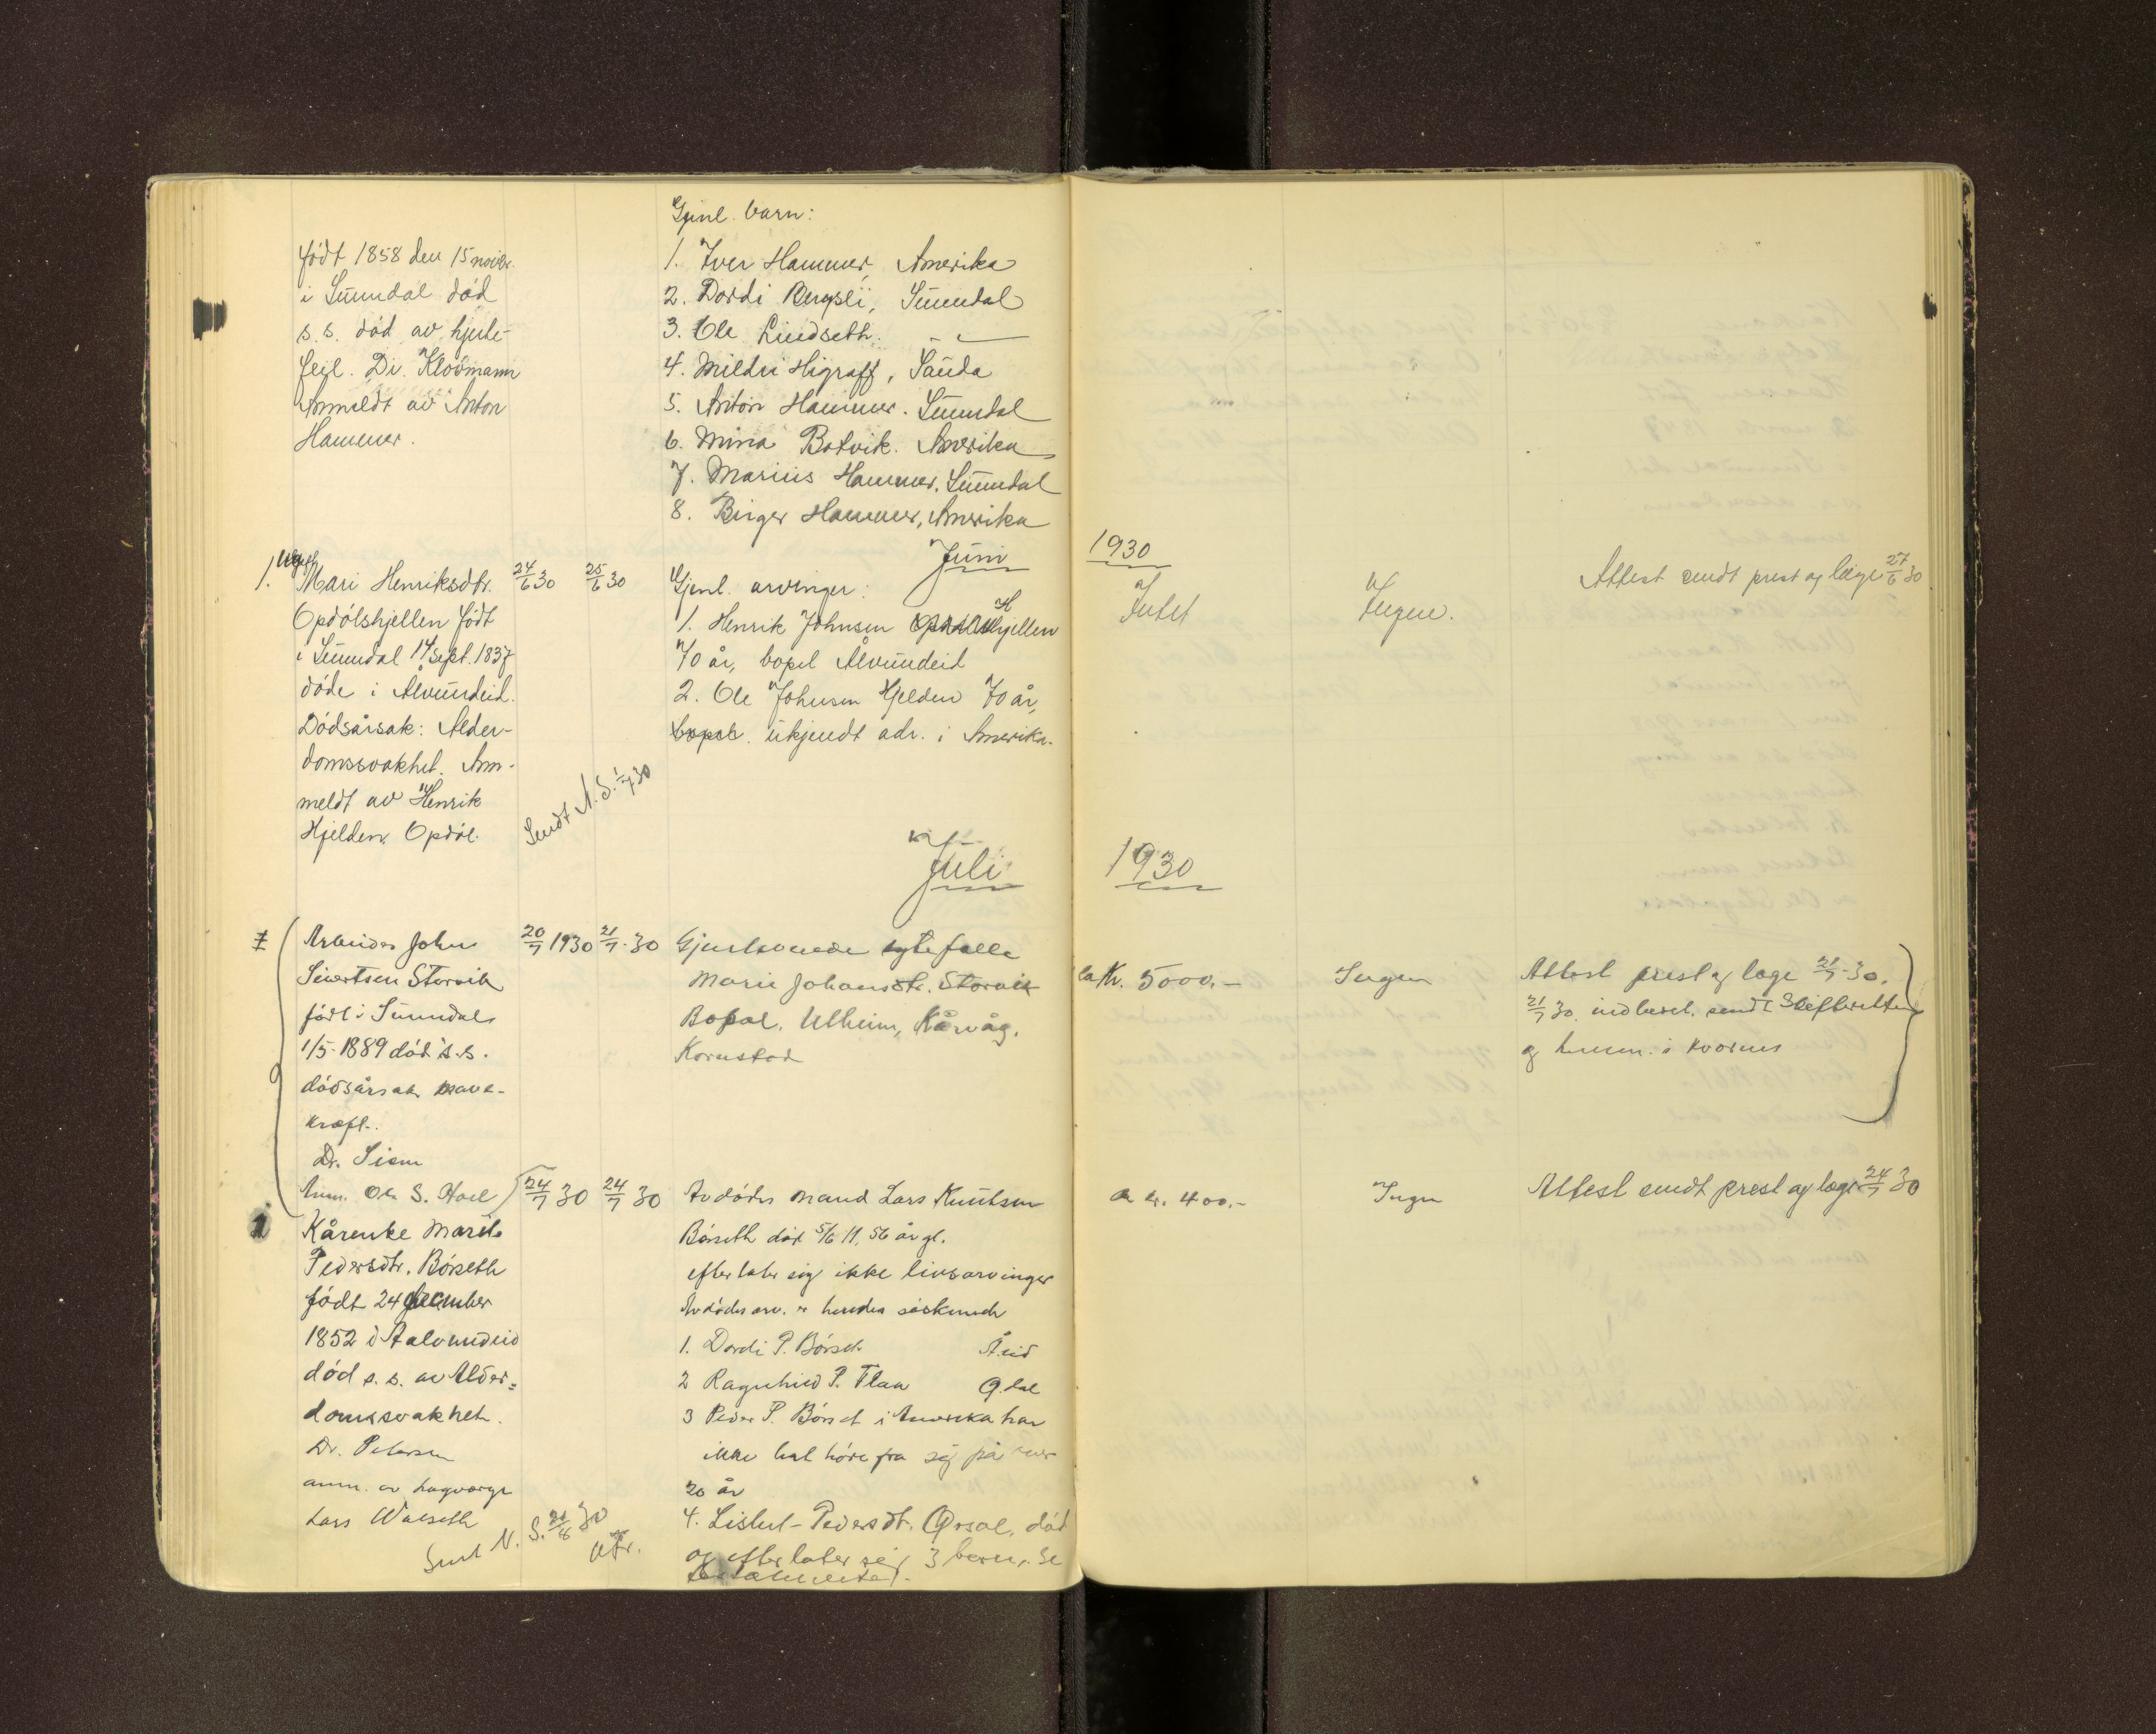 Gjenl. barn:
født 1858 den 15 novbr.
i Sunndal død
s. s. død av hjerte-
feil. Dr. Klovmann
Anmeldt av Anton
Hammer.
1. Iver Hammer, Amerika
2. Dordi Bergsli, Sunndal
3. Ole Lindseth. - " -
4. Mildri Higraff, Sauda
5. Anton Hammer. Sunndal
6. Mina Botvik. Amerika
7. Marius Hammer. Sunndal
8. Birger Hammer, Amerika
Juni 1930
1. Ugift
Mari Henriksdtr. 24/6 30 25/6 30
Opdølshjellen født
i Sunndal 14 sept. 1837
døde i Ålvundeid.
Dødsårsak: Alder-
domssvakhet. An-
meldt av Henrik
Hjelden. Opdøl.
Sendt N. S. 1/7 30
Gjenl. arvinger:
1. Henrik Johnsen Hjellen
70 år, bopel Ålvundeid
2. Ole Johnsen Hjelden 70 år,
bopel. ukjendt adr. i Amerika.
Intet
Ingen.
Attest sendt prest og læge 27/6 30
Juli 1930
Arbeider John 20/7 1930 21/7 - 30
Sivertsen Storvik
født i Sunndal
1/5 - 1889 død s. s.
dødsårsak mave-
kræft.
Dr. Siem
Anm. Ole S. Hoel
Gjenlevende ektefelle
Marie Johansdtr. Storvik
Bopæl. Ulheim, Kårvåg.
Kornstad
ca Kr. 5000.-
Ingen
Attest prest og læge 21/7 - 30.
21/7 30. indberet. sendt Skifteretten
og lensm. i Kvernes
1 24/7 30 24/7 30
Kårenke Marit
Pedersdtr. Børseth
født 24 december
1852 i Aalvundeid
død s. s. av Alder=
domssvakhet.
Dr. Petersen
anm. av lagværge
Lars Walseth
Sendt N. S. 20/8 30
Avdødes mand Lars Knutsen
Børseth død 5/6 11, 56 år gl.
efterlater sig ikke livsarvinger
Avdødes arv. er hendes søskende
1. Dordi P. Børset Å.eid
2 Ragnhild P. Flaa Ø.dal
3 Peder P. Børset i Amerika har
ikke latt høre fra sig på over
20 år
4. Lisbet Pedersdt. død
og efterlater sig 3 barn. Se
kr. 400.-
Ingen
Attest sendt prest og læge 24/7 30